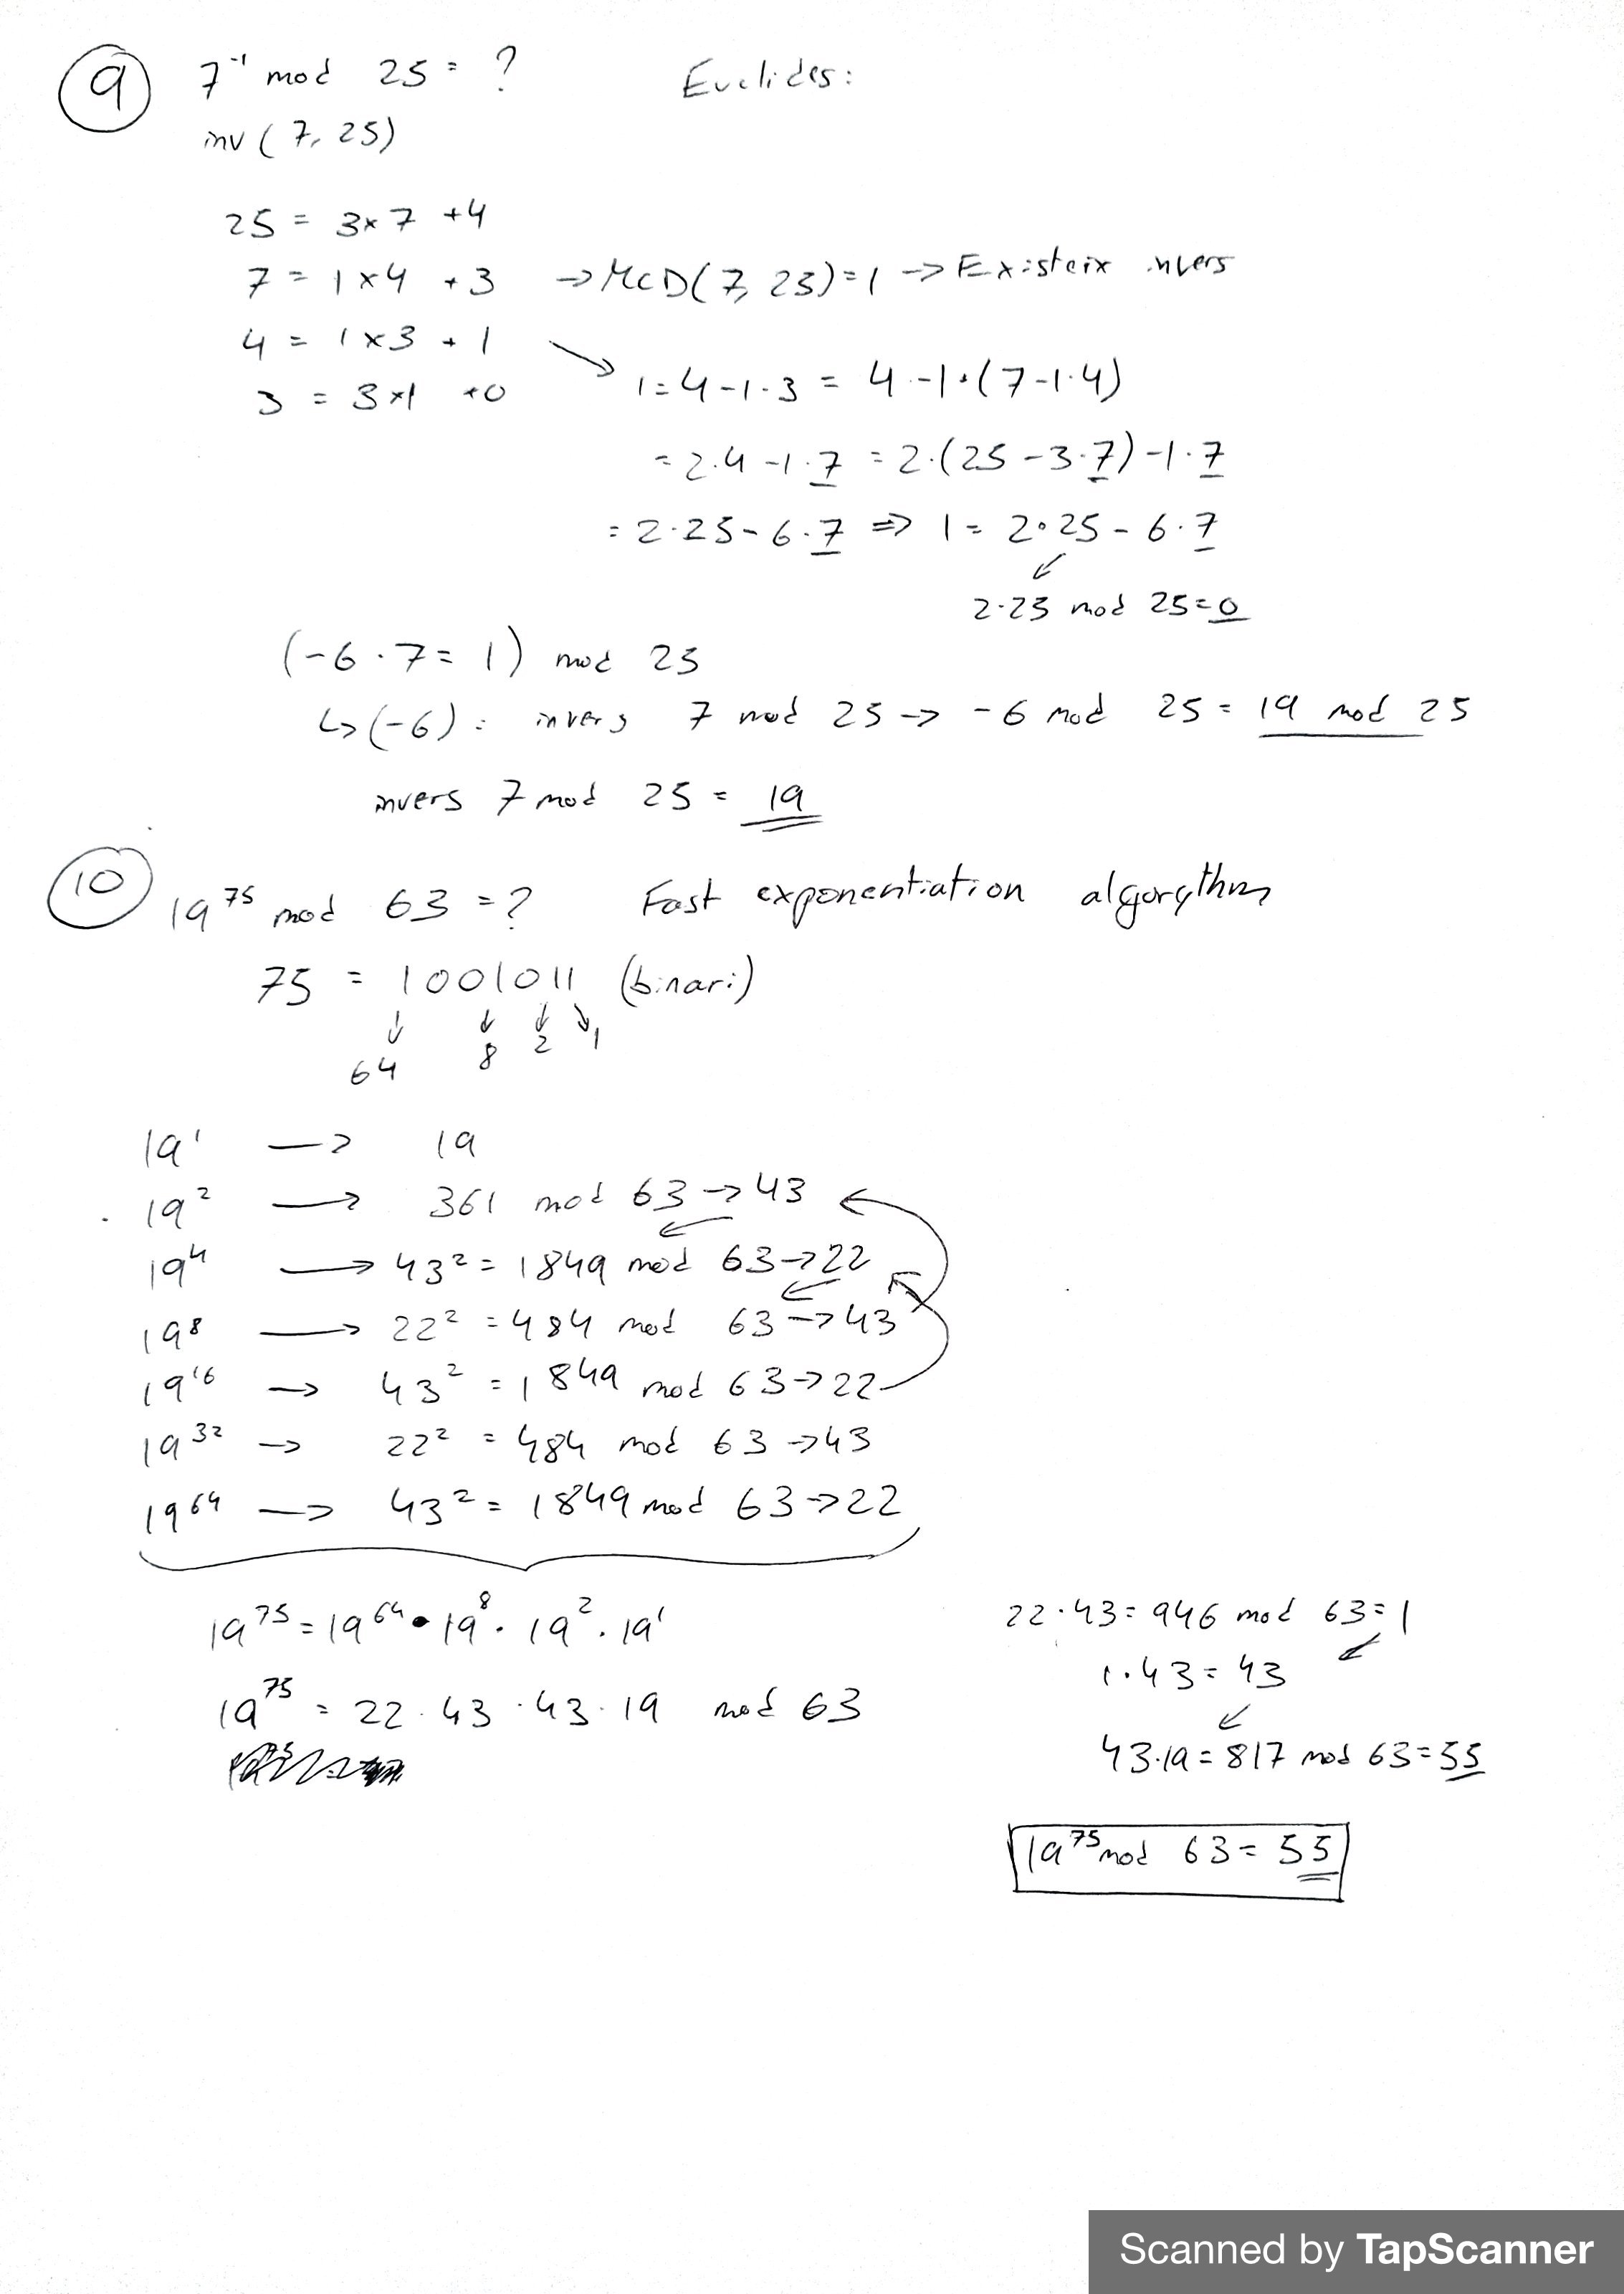 9 7⁻¹ mod 25 = ? Euclides:
inv (7, 25)
25 = 3x7 +4
7 = 1x4 +3 → McD(7, 25)=1 → Existeix invers
4 = 1x3 + 1
3 = 3x1 +0
1=4-1·3 = 4-1·(7-1·4)
=2·4-1·7 =2·(25-3·7)-1·7
=2·25-6·7 ⇒ 1= 2·25-6·7
2·25 mod 25=0
(-6·7=1) mod 25
↳(-6) = invers 7 mod 25 → -6 mod 25 = 19 mod 25
invers 7 mod 25 = 19
10 19⁷⁵ mod 63 =? Fast exponentiation algorythm
75 = 1001011 (binari)
64 8 2 1
19¹ → 19
19² → 361 mod 63 → 43
19⁴ → 43² = 1849 mod 63 → 22
19⁸ → 22² = 484 mod 63 → 43
19¹⁶ → 43² = 1849 mod 63 → 22
19³² → 22² = 484 mod 63 → 43
19⁶⁴ → 43² = 1849 mod 63 → 22
19⁷⁵ = 19⁶⁴·19⁸·19²·19¹
19⁷⁵ = 22·43·43·19 mod 63
22·43= 946 mod 63= 1
1·43= 43
43·19= 817 mod 63=55
19⁷⁵ mod 63= 55
Scanned by TapScanner